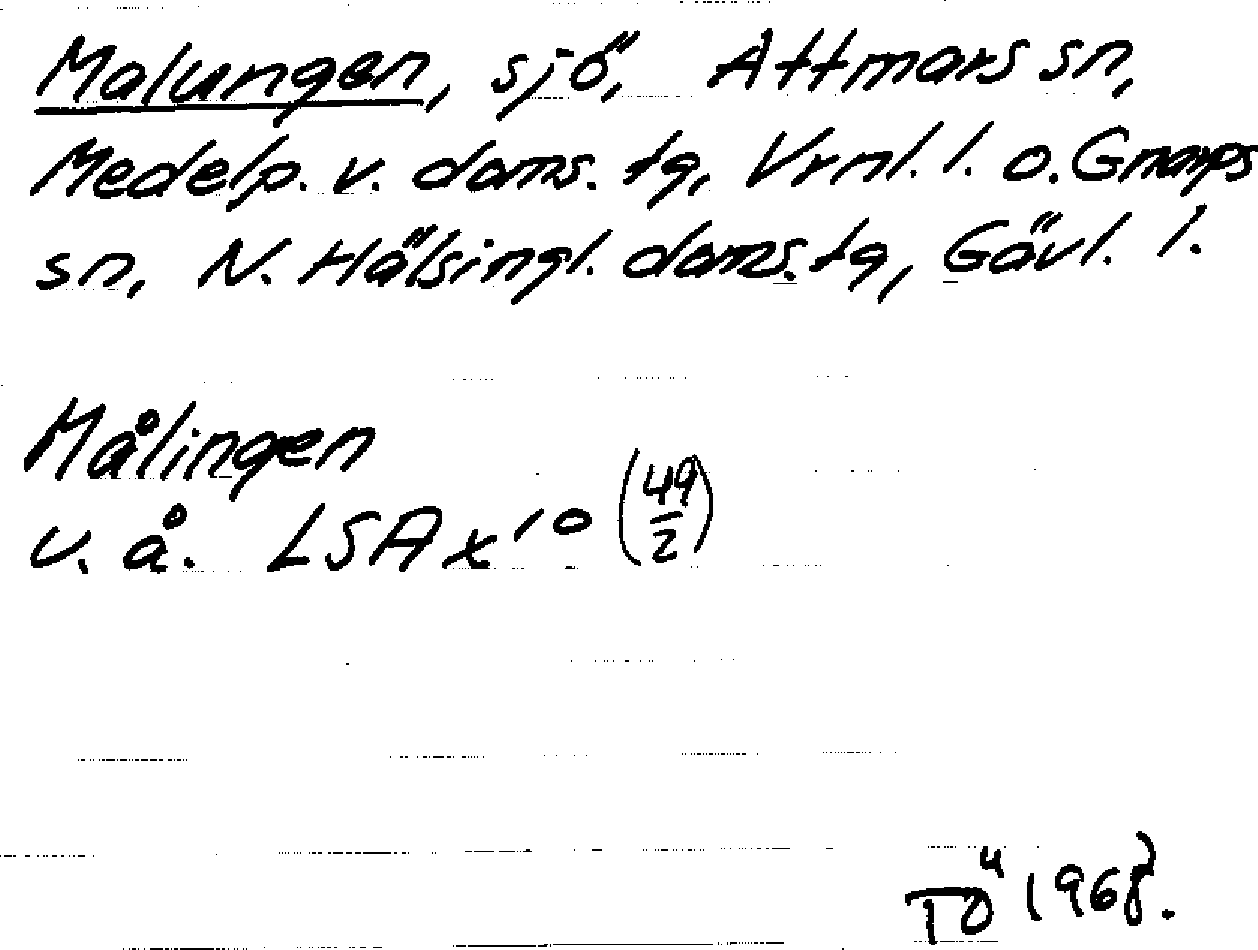 Malungen, sjö, Attmars sn,
Medelp. v. doms. tg, Vrnl. l. o. Gnarps
sn, N. Hälsingl. doms. tg, Gävl. l.
Målingen
u. å. LSA x10 (49/2)
TÖ 1968.